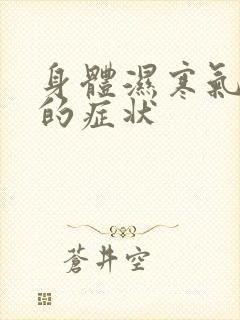 身體濕寒氣
的症状
蒼井空